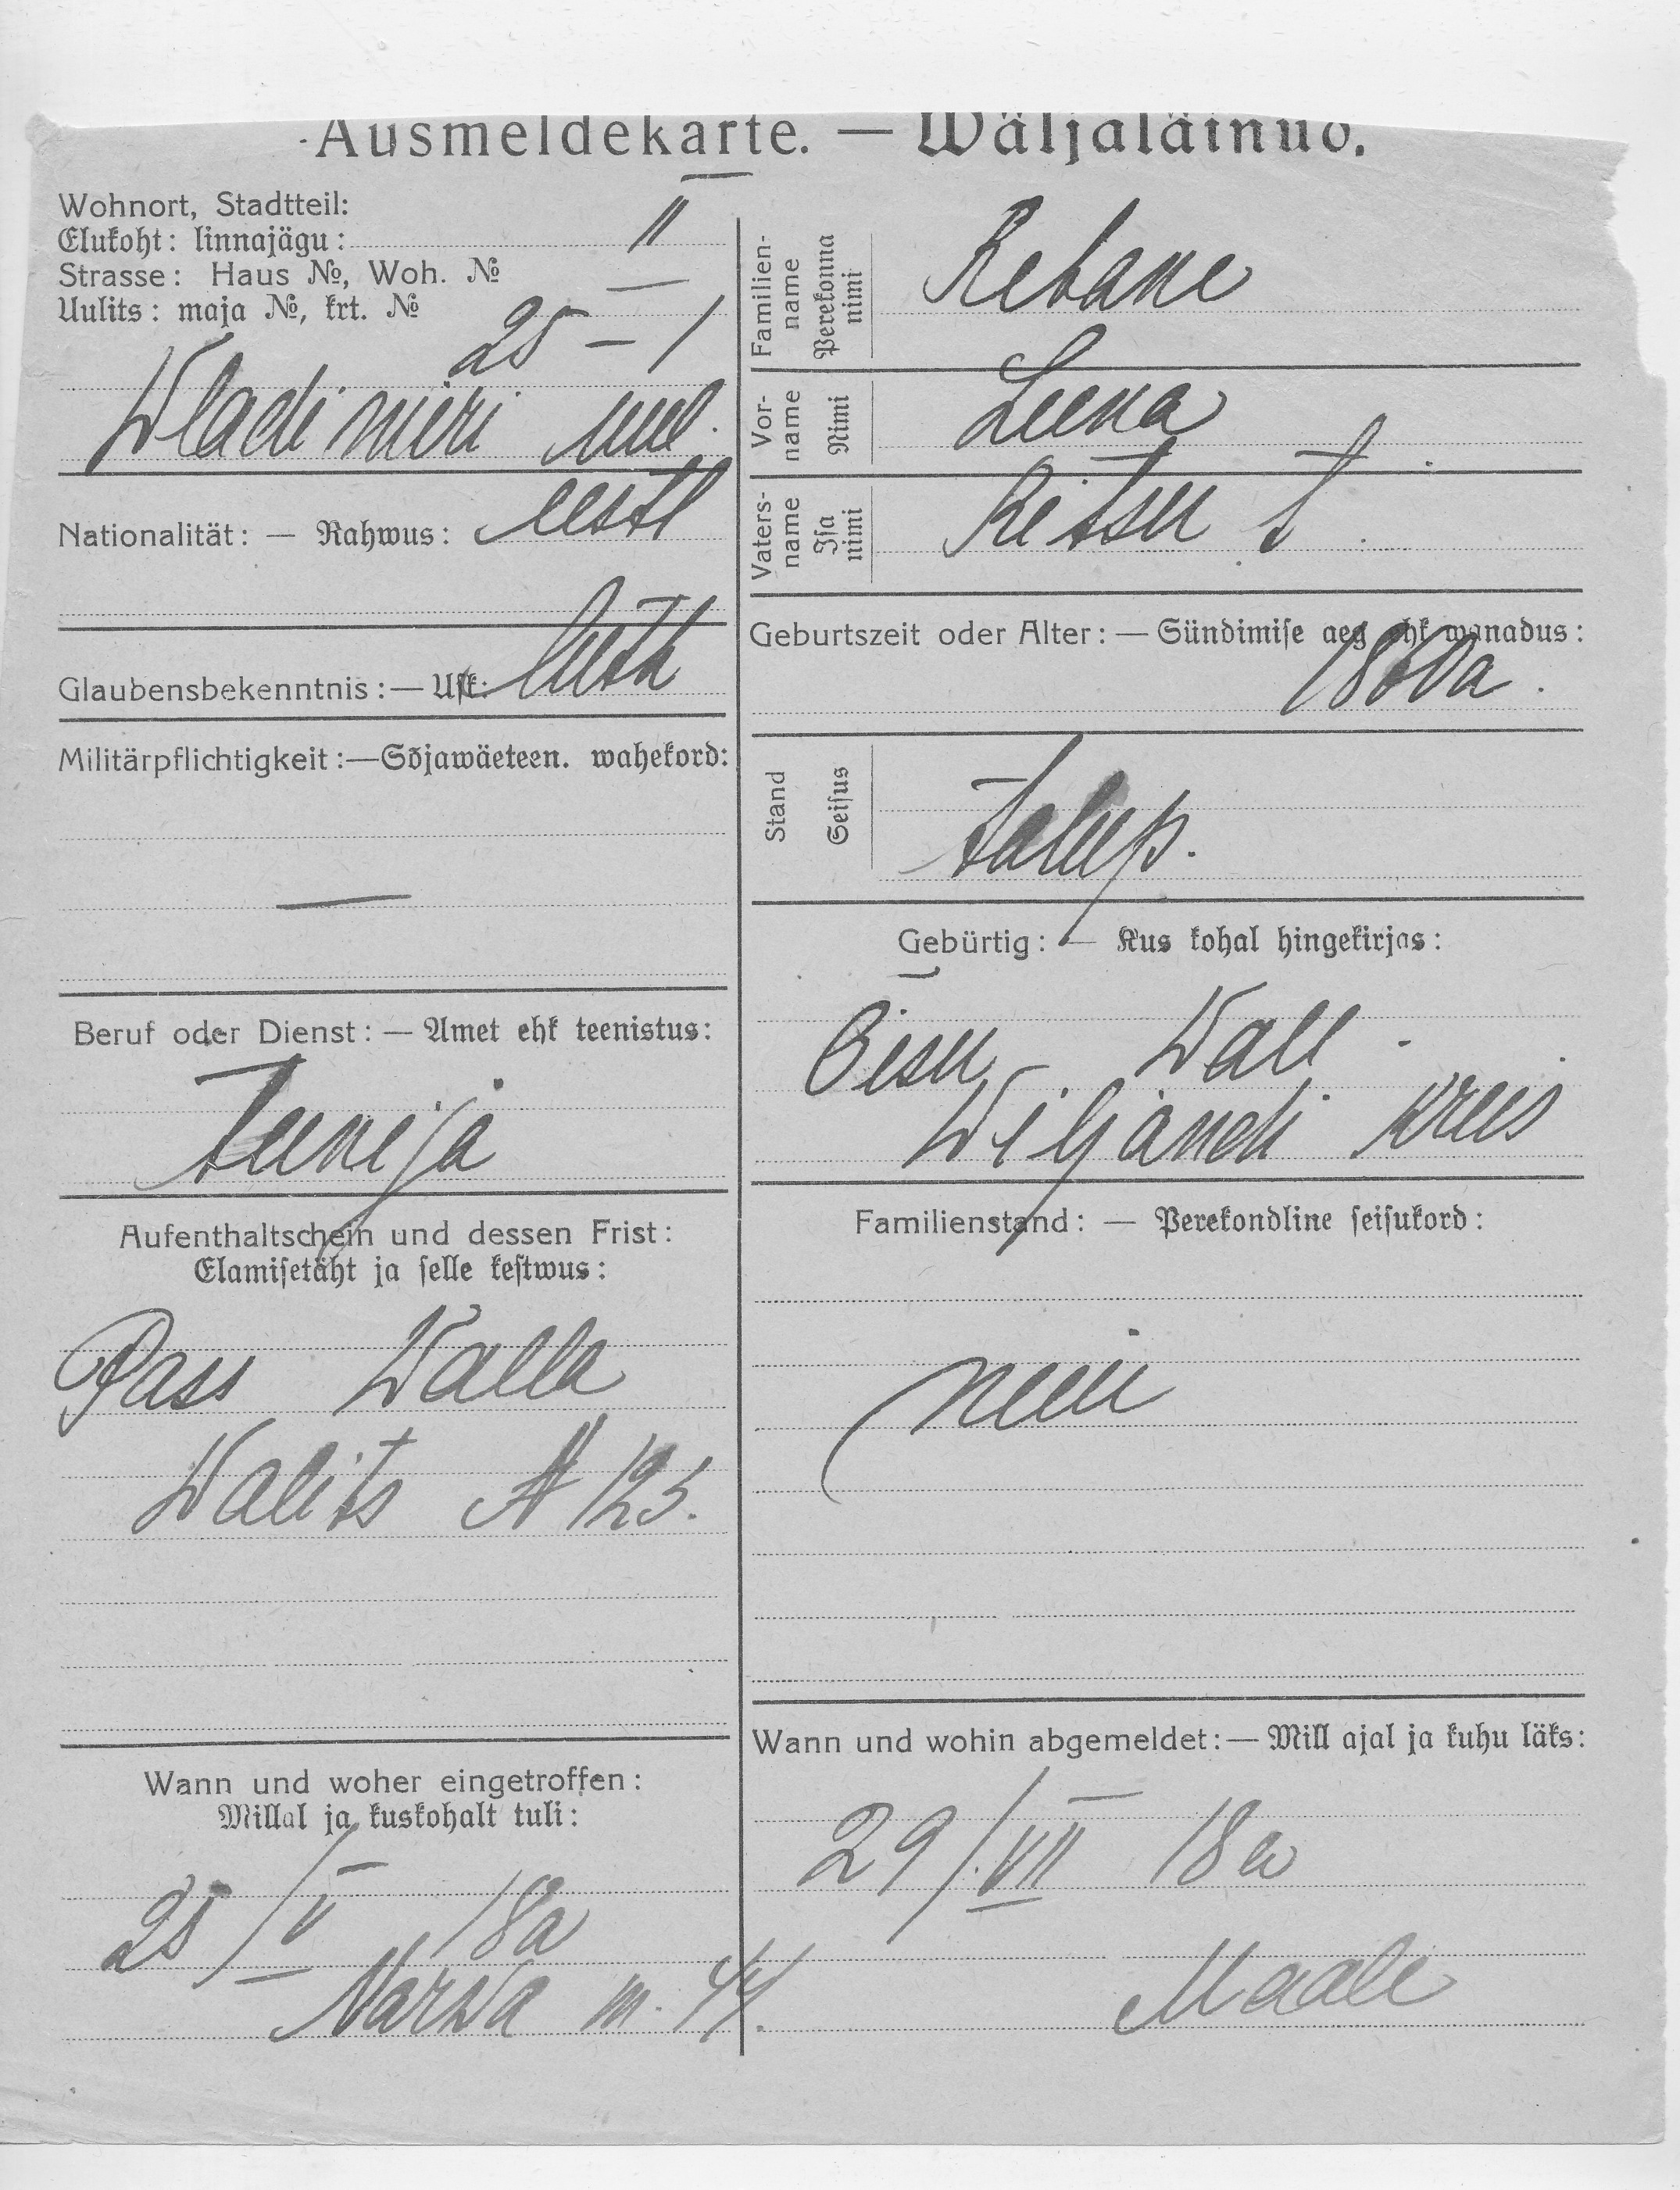 Ausmeldekarte. — Wäljaläinud.
Wohnort, Stadtteil:
Elukoht: linnajägu: II
Strasse: Haus №, Woh. №
Uulits: maja №, krt. №
25 – 1
Wladimiri uul.
Nationalität: — Rahwus: eestl
Glaubensbekenntnis: — Usk: luth
Militärpflichtigkeit: — Sõjawäeteen. wahekord:
—
Beruf oder Dienst: — Amet ehk teenistus:
Teenija
Aufenthaltschein und dessen Frist:
Elamisetäht ja selle kestwus:
Pass Walla
Walits № 125.
Wann und woher eingetroffen:
Millal ja kuskohalt tuli:
25/V 18a
Narwa m. 44.
Familien-
name
Perekonna
nimi
Rebane
Vor-
name
Nimi
Leena
Vaters-
name
Isa
nimi
Reitsu t.
Geburtszeit oder Alter: — Sündimise aeg ehk wanadus:
1860a.
Stand
Seisus
talup.
Gebürtig: — Kus kohal hingekirjas:
Õisu Wall.
Wiljandi kreis
Familienstand: — Perekondline seisukord:
neiu
Wann und wohin abgemeldet: — Mill ajal ja kuhu läks:
29/VII 18a
Maale